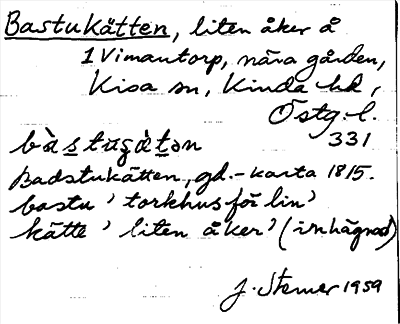 Bastukätten, liten åker å
1 Vimantorp, nära gården,
Kisa sn, Kinda hd,
Östg. l.
331
bàstugàtən
Badstukätten, gd.-karta 1815.
bastu 'torkhus för lin'
kätte 'liten åker' (inhägnad)
J. Sterner 1959